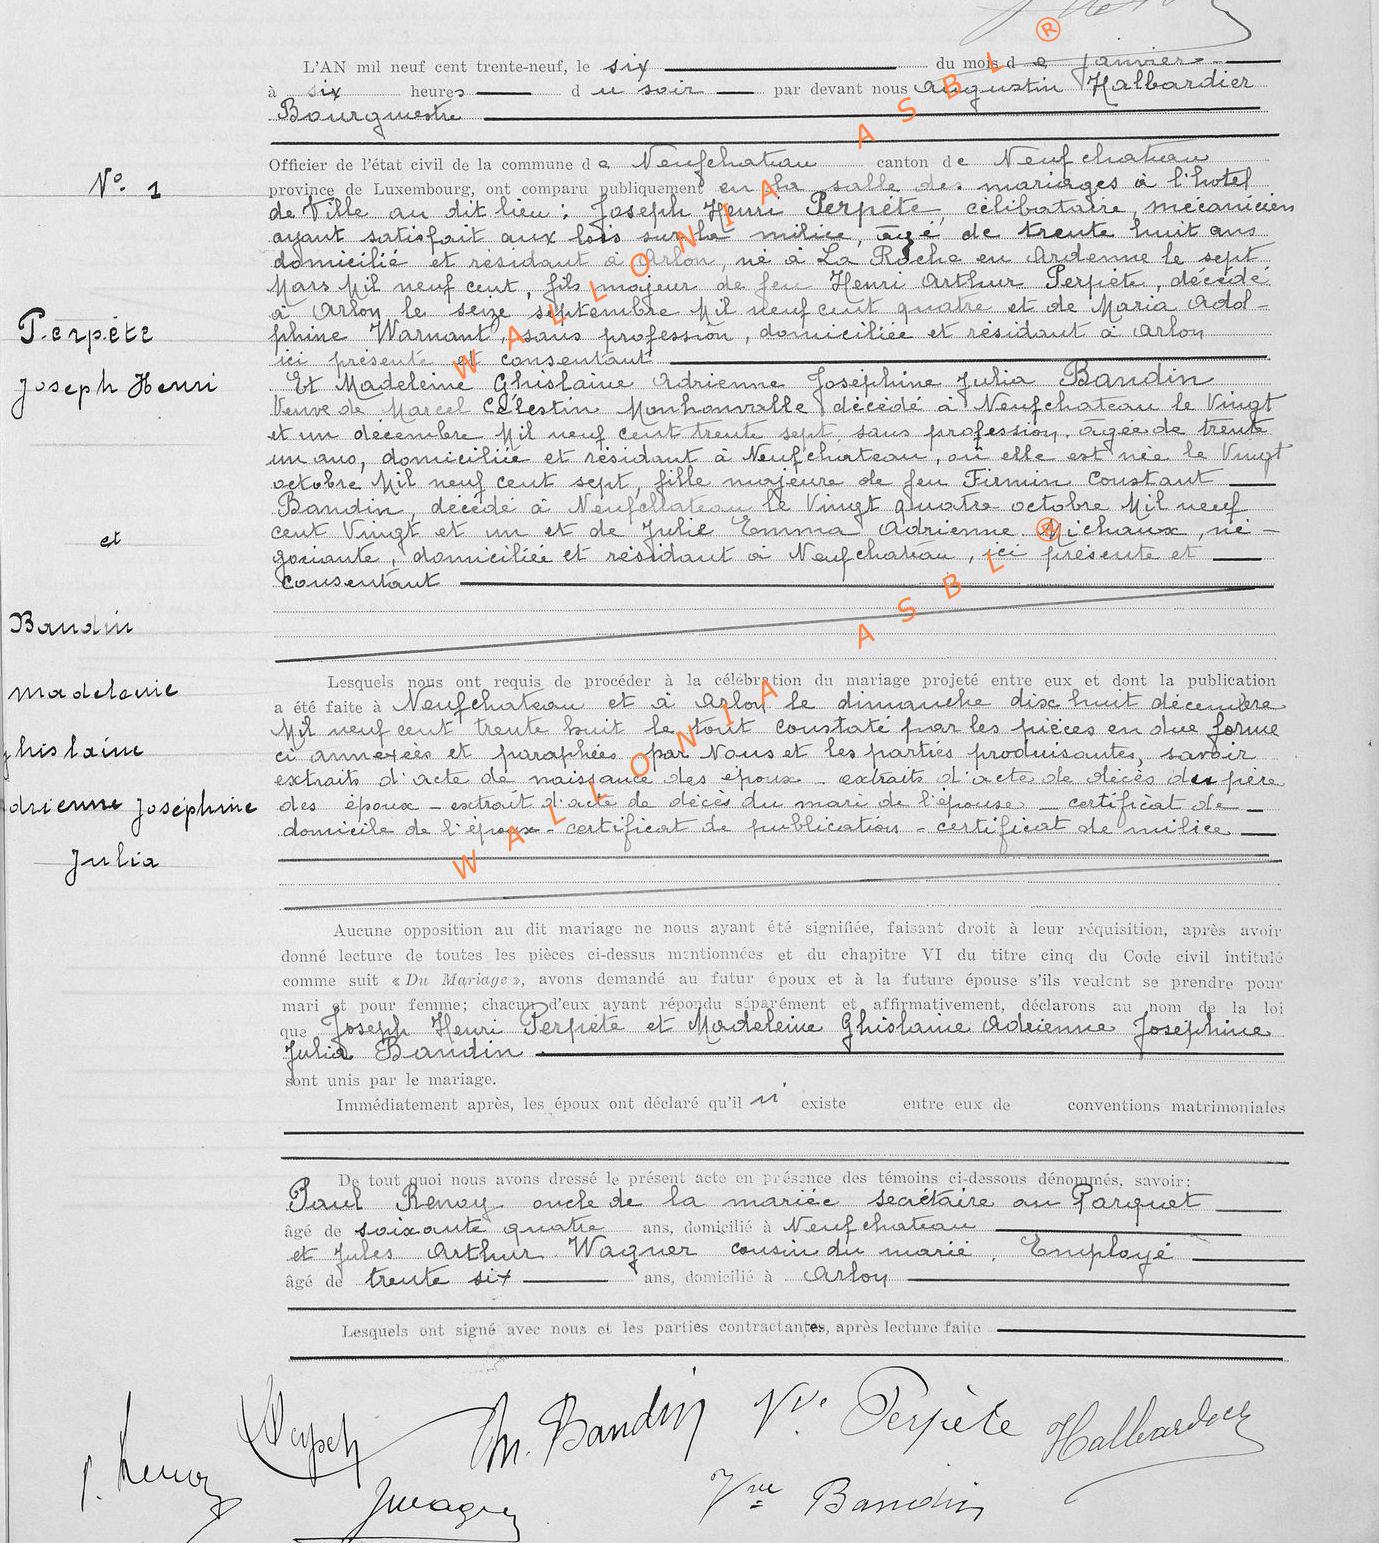 L'AN mil neuf cent trente-neuf, le six du mois de janvier
à six heures du soir par devant nous Augustin Halbardier
Bourgmestre
Officier de l'état civil de la commune de Neufchateau canton de Neufchateau
N° 1
province de Luxembourg, ont comparu publiquement en la salle des mariages à l'hotel
de Ville au dit lieu : Joseph Henri Perpète, célibataire, mécanicien
ayant satisfait aux lois sur la milice, âgé de trente huit ans
domicilié et résidant à Arlon, né à La Roche en Ardenne le sept
Mars Mil neuf cent, fils majeur de feu Henri Arthur Perpète, décédé
à Arlon le seize septembre Mil neuf cent quatre et de Maria Adol-
phine Warnant, sans profession, domiciliée et résidant à Arlon
ici présente et consentant
Perpète
Joseph Henri
Et Madeleine Ghislaine Adrienne Joséphine Julia Baudin
Veuve de Marcel Célestin Monhonvalle décédé à Neufchateau le Vingt
et un décembre Mil neuf cent trente sept, sans profession, âgée de trente
un ans, domiciliée et résidant à Neufchateau, où elle est née le Vingt
octobre Mil neuf cent sept, fille majeure de feu Firmin Constant
Baudin, décédé à Neufchateau le Vingt quatre octobre Mil neuf
cent Vingt et un et de Julie Emma Adrienne Michaux, né-
gociante, domiciliée et résidant à Neufchateau, ici présente et
consentant
et
Baudin
Madeleine
ghislaine
adrienne Joséphine
Julia
Lesquels nous ont requis de procéder à la célébration du mariage projeté entre eux et dont la publication
a été faite à Neufchateau et à Arlon le dimanche dix huit décembre
Mil neuf cent trente huit le tout constaté par les pièces en due forme
ci annexées et paraphées par Nous et les parties produisantes, savoir
extraits d'acte de naissance des époux - extraits d'acte de décès des père
des époux - extrait d'acte de décès du mari de l'épouse - certificat de
domicile de l'époux - certificat de publication - certificat de milice
Aucune opposition au dit mariage ne nous ayant été signifiée, faisant droit à leur réquisition, après avoir
donné lecture de toutes les pièces ci-dessus mentionnées et du chapitre VI du titre cinq du Code civil intitulé
comme suit « Du Mariage », avons demandé au futur époux et à la future épouse s'ils veulent se prendre pour
mari et pour femme; chacun d'eux ayant répondu séparément et affirmativement, déclarons au nom de la loi
que Joseph Henri Perpète et Madeleine Ghislaine Adrienne Joséphine
Julia Baudin
sont unis par le mariage.
Immédiatement après, les époux ont déclaré qu'il n' existe entre eux de conventions matrimoniales
De tout quoi nous avons dressé le présent acte en présence des témoins ci-dessous dénommés, savoir:
Paul Renoy oncle de la mariée secrétaire au Parquet
âgé de soixante quatre ans, domicilié à Neufchateau
et Jules Arthur Wagner cousin du marié, Employé
âgé de trente six ans, domicilié à Arlon
Lesquels ont signé avec nous et les parties contractantes, après lecture faite
P. Renoy Perpète M. Baudin Vve Perpète Halbardier
JWagner Vve Baudin
WALLONIA ASBL ®
WALLONIA ASBL ®